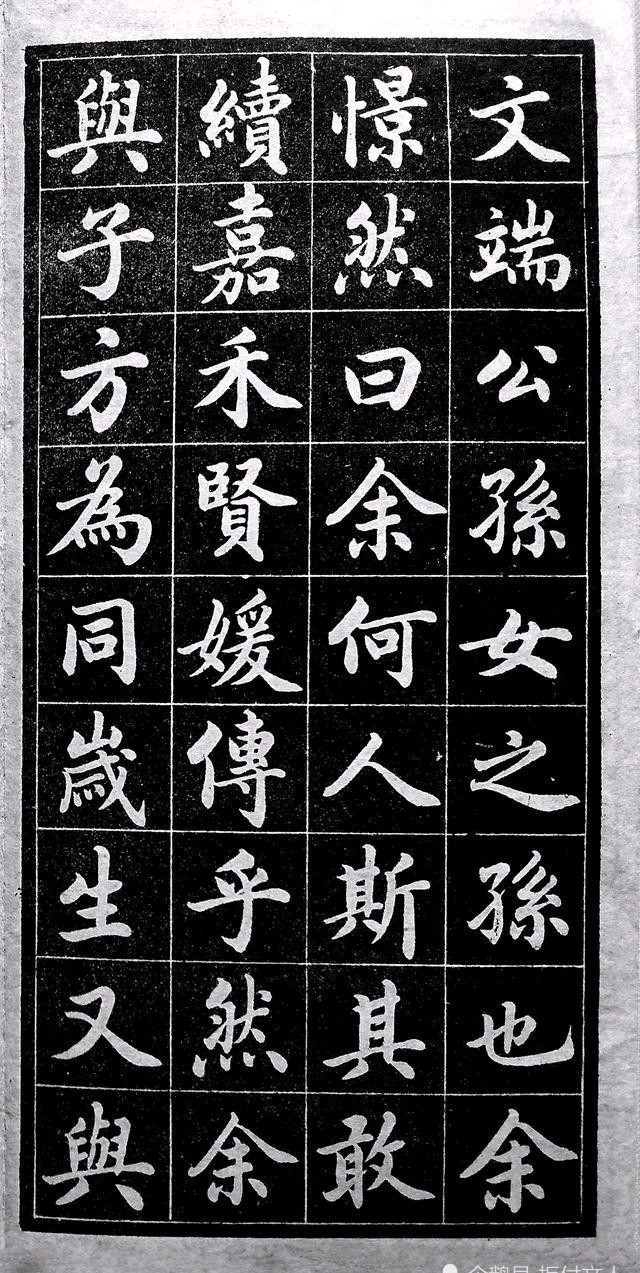 文端公孫女之孫也余
憬然曰余何人斯其敢
續嘉禾賢媛傳乎然余
與子方為同歲生又與